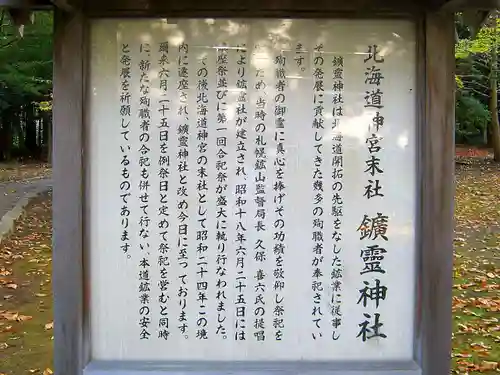 北海道神宮末社 鑛霊神社
鑛霊神社は北海道開拓の先駆をなした鉱業に従事し
その発展に貢献してきた幾多の殉職者が奉祀されてい
ます。
殉職者の御霊に真心を捧げその功績を敬仰し祭祀を
ため、当時の札幌鉱山監督局長 久保 喜六氏の提唱
により鉱霊社が建立され、昭和十八年六月二十五日には
鎮座祭並びに第一回合祀祭が盛大に執り行なわれました。
その後北海道神宮の末社として昭和二十四年この境
内に遷座され、鑛霊神社と改め今日に至っております。
爾来六月二十五日を例祭日と定めて祭祀を営むと同時
に、新たな殉職者の合祀も併せて行ない、本道鉱業の安全
と発展を祈願しているものであります。